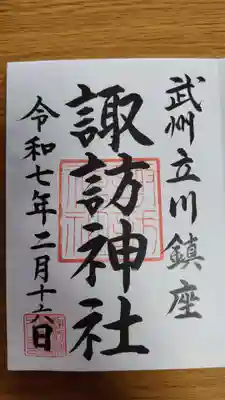 武州立川鎮座
諏訪神社
令和七年二月十六日